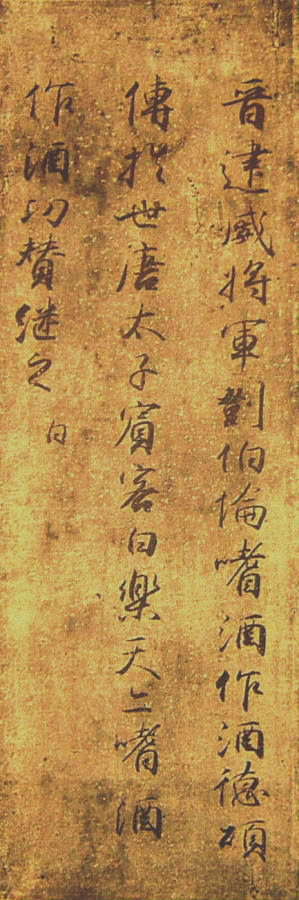 晋建威将軍劉伯倫嗜酒作酒徳頌
傳於世唐太子賓客白樂天亦嗜酒
作酒功賛継之
白